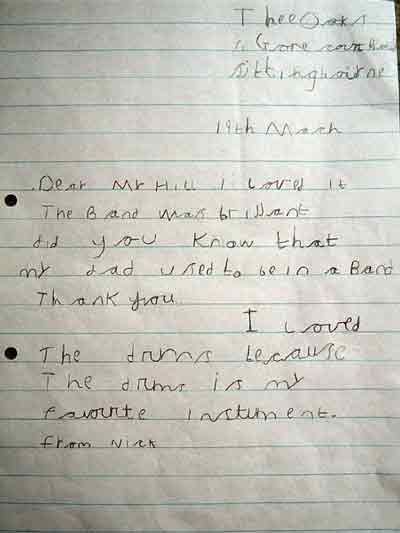 Thee Oaks
Gore
sittingbourne
19th March
Dear Mr Hill I Loved it
The Band was brillant
did you know that
my dad used to be in a Band
Thank you
I Loved
The drums because
The drums is my
favourite instument.
from Nick